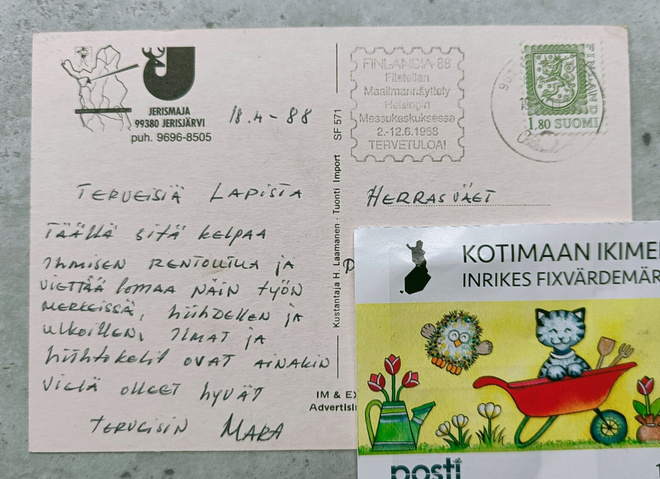 JERISMAJA
99380 JERISJÄRVI
puh. 9696-8505
18.4-88
TERVEISIÄ LAPISTA
TÄÄLLÄ SITÄ KELPAA
IHMISEN RENTOUTUA JA
VIETTÄÄ LOMAA NÄIN TYÖN
MERKEISSÄ, HIIHDELLEN JA
ULKOILLEN, ILMAT JA
HIIHTOKELIT OVAT AINAKIN
VIELÄ OLLEET HYVÄT
TERVEISIN MARA
Kustantaja H. Laamanen - Tuonti Import SF 571
IM & EX
Advertisi
FINLANDIA 88
Filatelian
Maailmannäyttely
Helsingin
Messukeskuksessa
2.-12.6.1988
TERVETULOA!
FINLAND
1,80 SUOMI
HERRASVÄET
KOTIMAAN IKIME
INRIKES FIXVÄRDEMÄR
posti